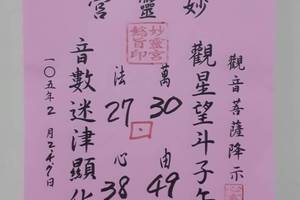 妙靈宮
觀音菩薩降示
觀星望斗子午
萬 30 由 49
法 27 心 38
音數迷津顯化
一〇五年2月
日
妙靈宮
旨印